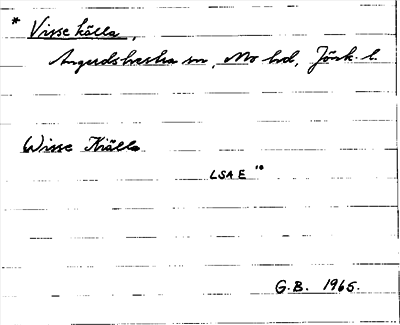 * Visse källa,
Angerdshestra sn, Mo hd, Jönk. l.
Wisse Kiälla
LSA E 10
G.B. 1965.